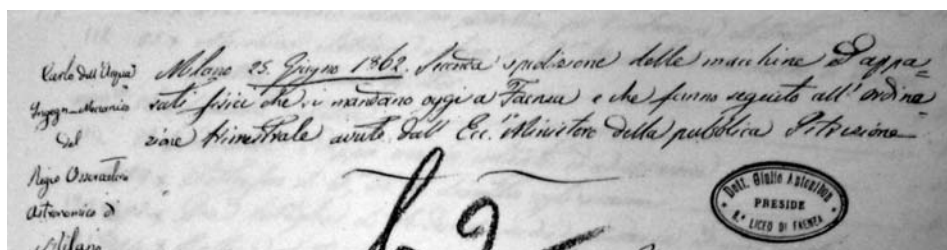 Carlo Dell'Acqua
Ingegn. Meccanico
del
Regio Osservatorio
Astronomico di
Milano
Milano 25. Giugno 1862. Seconda spedizione delle macchine ed appa=
rati fisici che si mandano oggi a Faenza e che fanno seguito all' ordina=
zione trimestrale avuta dall' Ecc.mo Ministero della pubblica Istruzione
Dott. Giulio Antonibon
PRESIDE
R.° LICEO DI FAENZA